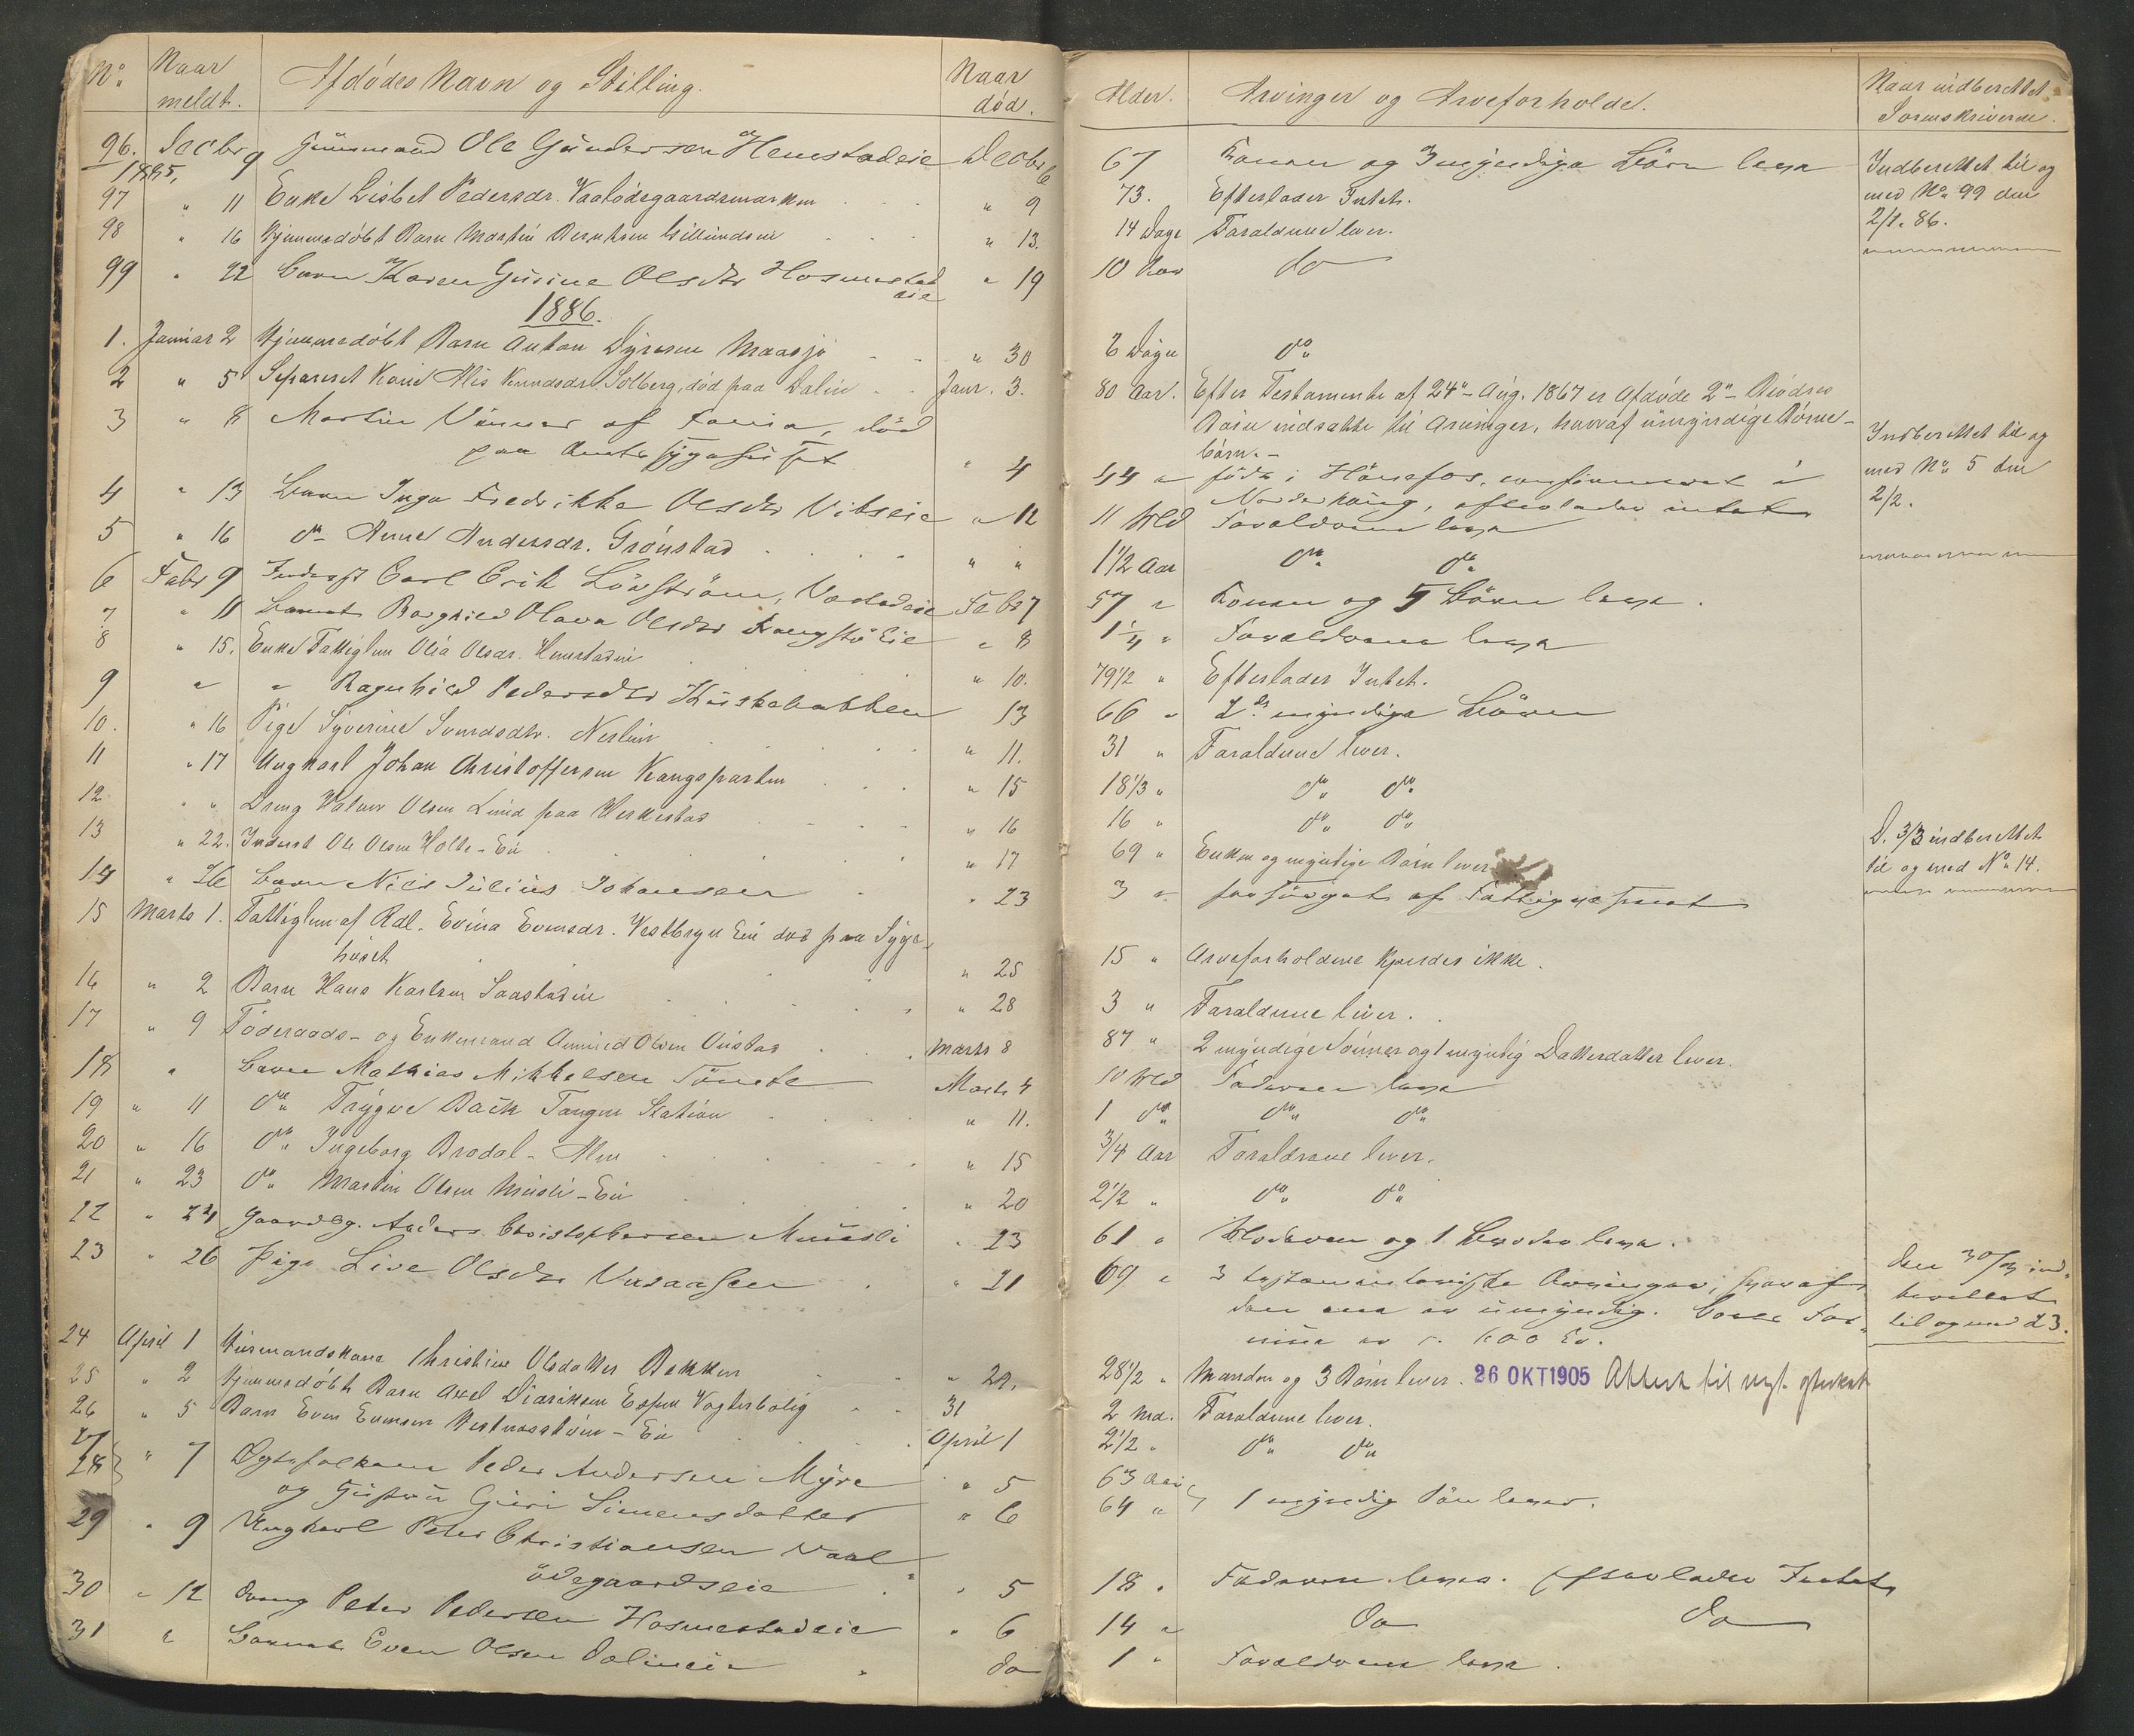 No. Naar meldt. Afdødes Navn og Stilling. Naar død. Alder. Arvinger og Arveforholde. Naar indberettet Sorenskriveren.
96. Decbr 9 Ole Gundersen Hemstadeie Decbr 6 67 Konen og 3 myndige Børn leve Indberettet til og
1885,
97 " 11 Enke Lisbet Pedersdr. Vaalødegaardsmarken " 9 73. Efterlader Intet. med No. 99 den
98 " 16 Hjemmedøbt Barn Martin Berntsen " 13. 14 Dage Forældrene lever. 2/1. 86.
99 " 22 Barn Karen Gurine Olsdtr Hosmestad " 19 10 do
eie
1886.
1. Januar 2 Hjemmedøbt Barn Anton Maasjø " 30 Dage do
2 " 5 Separeret Kone Knudsdr. Solberg, død paa Dalin Janr. 3. 80 Aar. Efter Testamente af 24de Aug. 1867 er Afdøde 2de Brødres
Børn indsatte til Arvinger, hvoraf umyndige Børne-
børn.
3 " 8 Martin af død Indberettet til og
paa Amtssygehuset " 4 44 " født i Hønefos, confirmeret i med No. 5 den
Norderhoug, efterlader intet 2/2.
4 " 13 Barn Inga Fredrikke Olsdtr Vibseie " 12 11 Md Forældrene leve
5 " 16 do Anne Andersdr. Grønstad " " 1 1/2 Aar do do
6 Febr 9 Inderst Carl Erik Löfström, Febr 7 57 " Konen og 5 Børn leve.
7 " 11 Barnet Borghild Olava Olsdtr Eie " 8 1 1/4 " Forældrene leve
8 " 15. Enke Fattiglem Olia Olsdr. Hemstadeie " 10. 79 1/2 " Efterlader Intet.
9 " " Ragnhild Pedersdtr Kuskebakken 13 66 " 2de myndige Börn
10. " 16 Pige Syverine Svendsdtr. " 11. 31 " Forældrene lever.
11 " 17 Ungkarl Johan Christoffersen Kongsparten " 15 18 1/3 " do do
12 " " Dreng Olsen Lund paa Herkestad " 16 16 " do do
13 " 22. Inderst Ole Olsen Holte-Eie " 17 69 " Enken og myndige Børn lever D. 3/3 indberettet
14 " 26 Barn Nils Julius Johansen " 23 3 " forsørget af Fattigvæsenet til og med No. 14.
15 Marts 1. Fattiglem af Rdl. Evina Evensdr. Vestbryn Eie død paa Syge-
huset " 25 15 " Arveforholdene kjendes ikke.
16 " 2 Barn Hans Karlsen Saastadeie " 28 3 " Forældrene lever.
17 " 9 Føderaads- og Enkemand Amund Olsen Marts 8 87 " 2 myndige Sønner og 1 myndig Datterdatter lever.
18 " Barn Mathias Mikkelsen Marts 4 10 Md Forældrene leve
19 " 11 do Trygve Bach Tangen Station " 11. 1 do do do
20 " 16 do Ingeborg Brodal-Alm " 15 3/4 Aar Forældrene lever.
21 " 23 do Martin Olsen Musli-Eie " 20 2 1/2 " do do
22 " 24 Gaardbg. Anders Christophersen Musli " 23 61 " Moderen og 1 Broder leve.
23 " 26 Pige Live Olsdtr " 21 69 " 3 testamentariske Arvinger, hvoraf den 30/3 ind-
den ene er umyndig. For- berettet
mue er c. 600 Kr. til og med 23.
24 April 1 Husmandskone Christine Olsdatter Bekken " 29. 28 1/2 " Manden og 3 Børn lever. 26 OKT 1905 Attest til
25 " 2 Hjemmedøbt Barn Axel Espen Vogterbolig 31 2 Md. Forældrene lever.
26 " 5 Barn Even Evensen -Eie April 1 2 1/2 " do do
27/28 " 7 Ægtefolkene Peder Andersen Myre " 5 63 Aar 1 myndig Søn lever.
og Hustru Guri Simensdatter " 6 64 "
29 " 9 Ungkarl Peter Christiansen Vaal-
ødegaardseie " 5 18 " Faderen leve. Efterlader Intet
30 " 12 Dreng Peter Pedersen Hosmestadeie " 6 14 " Do do
31 " Barnet Even Olsen Dalineie do 1 " Forældrene leve.